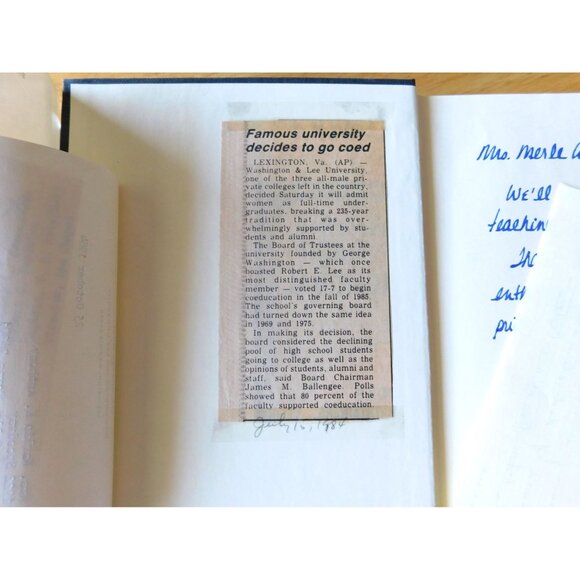 Famous university
decides to go coed
LEXINGTON, Va. (AP) —
Washington & Lee University,
one of the three all-male pri-
vate colleges left in the country,
decided Saturday it will admit
women as full-time under-
graduates, breaking a 235-year
tradition that was over-
whelmingly supported by stu-
dents and alumni.
The Board of Trustees at the
university founded by George
Washington — which once
boasted Robert E. Lee as its
most distinguished faculty
member — voted 17-7 to begin
coeducation in the fall of 1985.
The school's governing board
had turned down the same idea
in 1969 and 1975.
In making its decision, the
board considered the declining
pool of high school students
going to college as well as the
opinions of students, alumni and
staff, said Board Chairman
James M. Ballengee. Polls
showed that 80 percent of the
faculty supported coeducation.
July 1984
Mrs. Merle
We'll
teachin